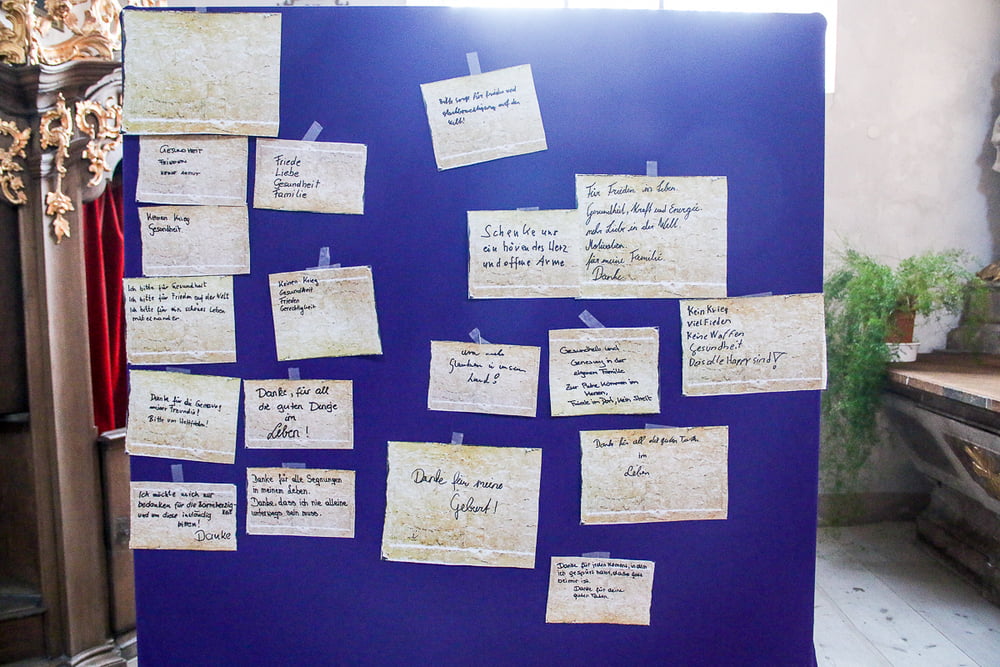 Bitte sorge für Frieden und
Gleichberechtigung auf der
Welt!
GESUNDHEIT
FRIEDEN
KEINE ARMUT
Friede
Liebe
Gesundheit
Familie
Keinen Krieg
Gesundheit
Schenke uns
ein hörendes Herz
und offene Arme
Für Frieden im Leben.
Gesundheit, Kraft und Energie.
mehr Liebe in der Welt.
Motivation.
für meine Familie.
Danke.
Ich bitte für Gesundheit
Ich bitte für Frieden auf der Welt
Ich bitte für ein schönes Leben
miteinander.
Keinen Krieg
Gesundheit
Frieden
Gerechtigkeit
Kein Krieg
Viel Fieden
Keine Waffen
Gesundheit
Das alle Happy sind!
um mehr
Glauben in unserem
Land!
Gesundheit und
Genesung in der
eigenen Familie
Zur Ruhe kommen im
Herzen,
Friede im Dorf, kein Streit
Danke für die Genesung
meiner Freundin!
Bitte um Weltfrieden!
Danke, für all
die guten Dinge
im
Leben!
Danke für all die guten Taten
im
Leben
Danke für meine
Geburt!
Ich möchte mich nur
bedanken für die Barmherzig-
keit
und um diese inständig
bitten!
Danke
Danke für alle Segnungen
in meinem Leben.
Danke, dass ich nie alleine
unterwegs sein muss.
Danke für jeden Moment, in dem
ich gespürt habe, dass Gott
bei mir ist.
Danke für deine
guten Taten